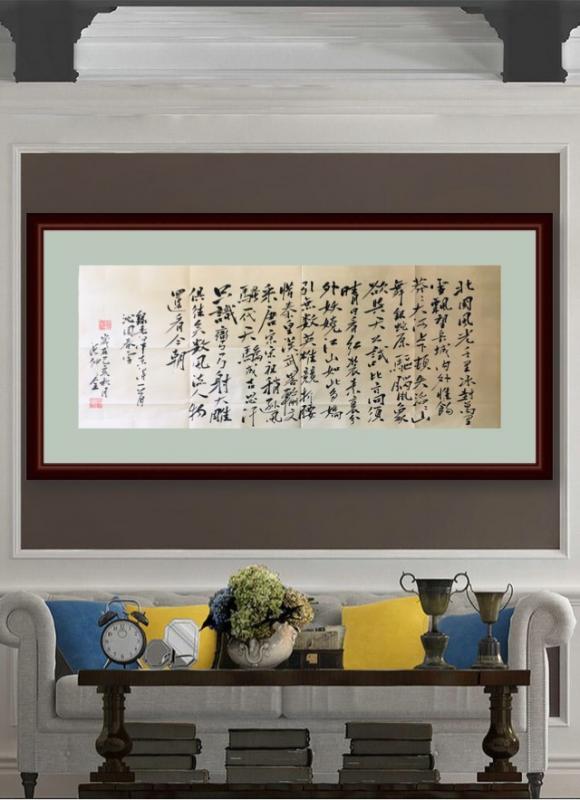 北国风光千里冰封萬里
雪飘望长城内外惟餘
莽々大河上下顿失滔々山
舞银蛇原驰腊象
欲与天公试比高须
晴日看红装素裹分
外妖娆江山如此多娇
引无数英雄竞折腰
惜秦皇汉武略输文
采唐宗宋祖稍逊风
骚一代天骄成吉思汗
只识弯弓射大雕
俱往矣数风流人物
還看今朝
沁园春雪
岁在己亥秋月